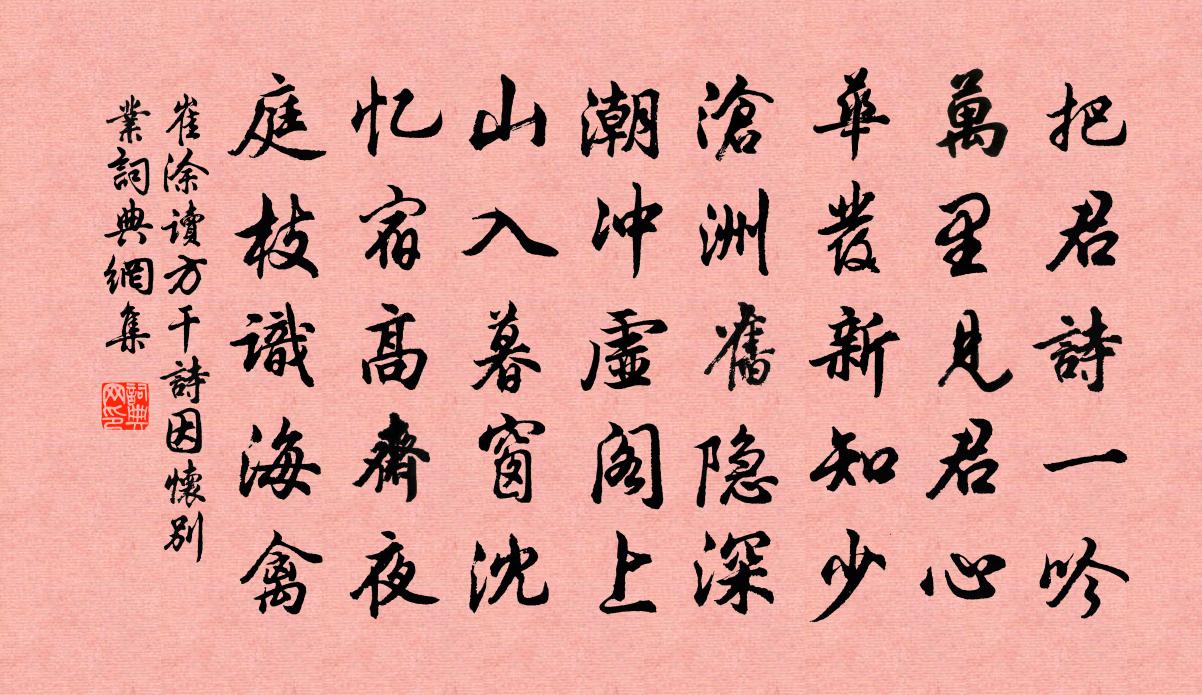 把君詩一吟
萬里見君心
華發新知少
滄洲舊隐深
潮冲虛閣上
山入暮窗沈
忆宿高齋夜
庭枝識海禽
崔涂讀方干詩因懷別
業詞典網集
詞典
网印